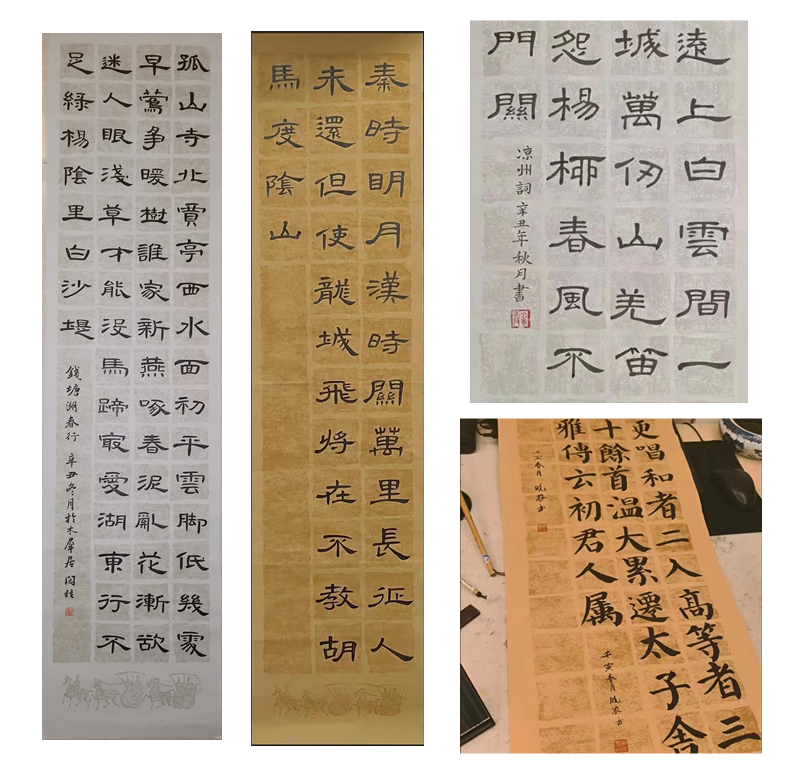 孤山寺北賈亭西水面初平雲脚低幾處
早鶯爭暖樹誰家新燕啄春泥亂花漸欲
迷人眼淺草才能沒馬蹄最愛湖東行不
足綠楊陰里白沙堤
錢塘湖春行 辛丑冬月於木犀居
秦時明月漢時關萬里長征人
未還但使龍城飛將在不教胡
馬度陰山
遠上白雲間一
城萬仞山羌笛
怨楊柳春風不
門關
凉州詞 辛丑年秋月書
更唱和者二入高等者三
十餘首温大累遷太子舍
雅傳云初君人属
壬寅春月
壬寅春月